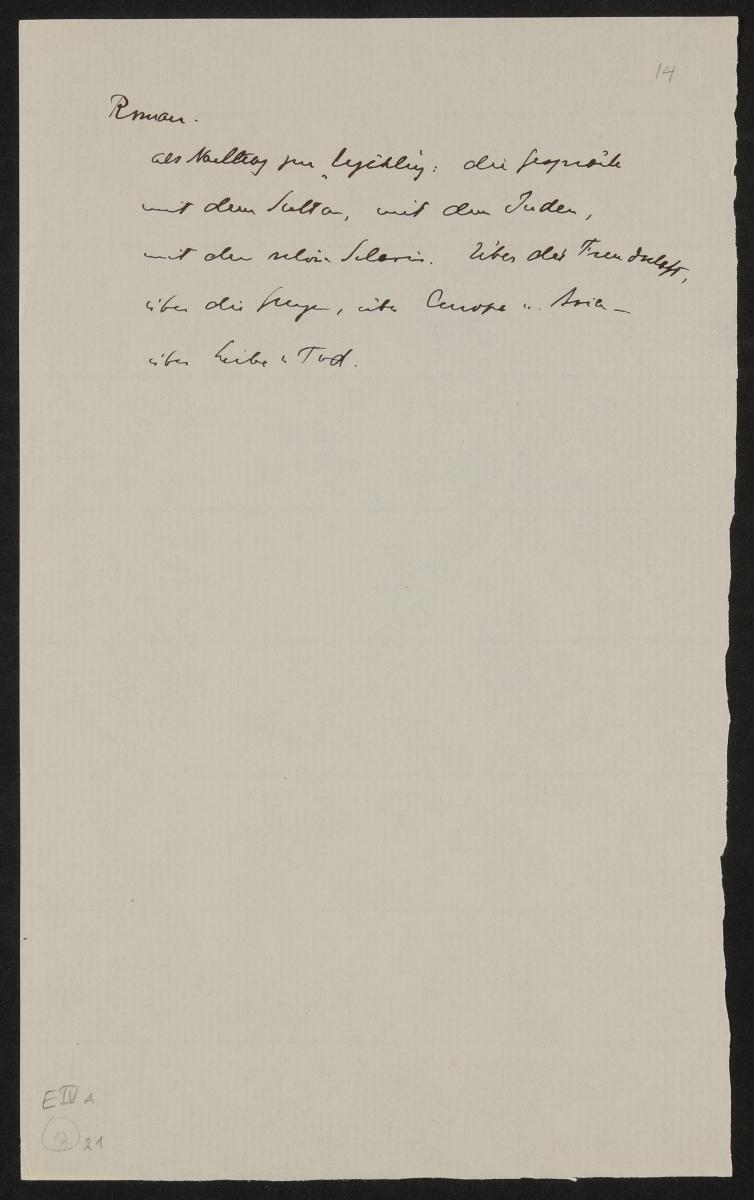 14
Roman.
als Nachtrag zur Erzählung: die Gespräche
mit dem Sultan, mit dem Juden,
mit der schön Sclavin. Über die Freundschaft,
über die, über Europa u. Asien –
über Liebe u Tod.
E IV A
21